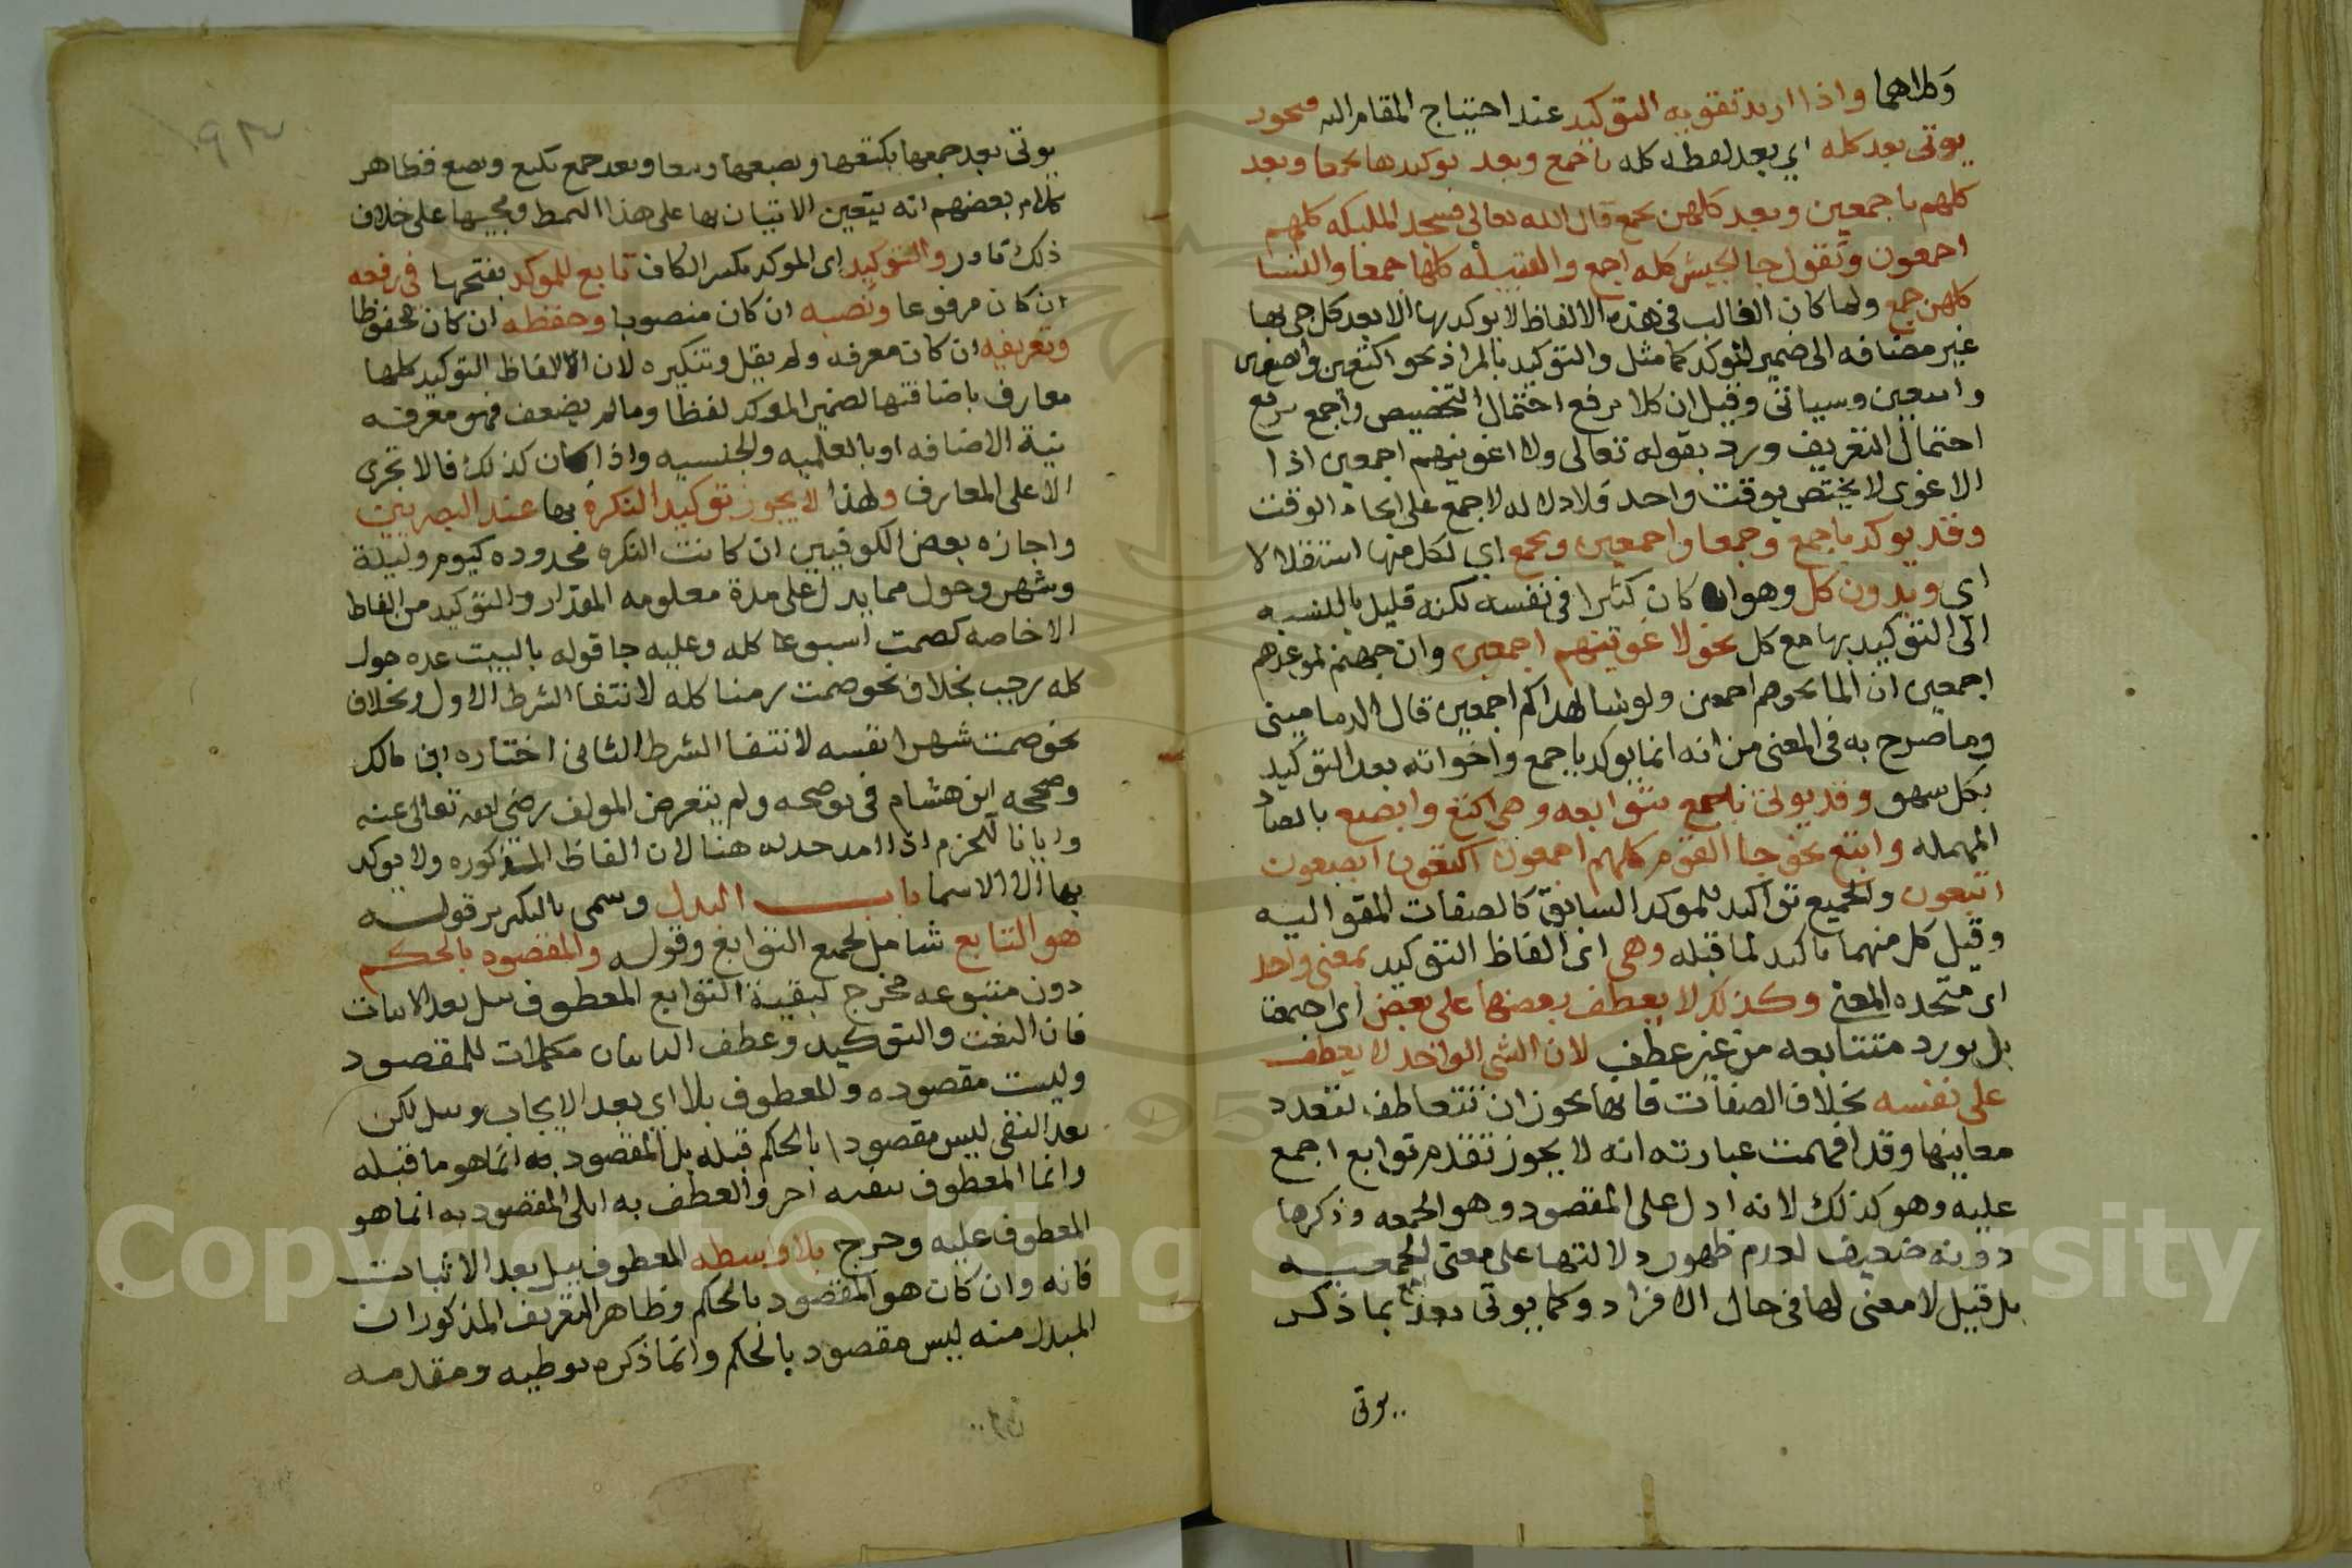 وكلاهما واذا اريد تقويه التوكيد عند احتياج المقام اليه فيجوز
يوتى بعد كله اي بعد لفظه كله باجمع وبعد توكيدها بجمعا وبعد
كلهم باجمعين وبعد كلهن بجمع قال الله تعالى فسجد المليكه كلهم
اجمعون وتقول جا الجيش كله اجمع والقبيله كلها جمعا والنسا
كلهن جمع ولما كان الغالب في هذه الالفاظ لا يوكد بها الا بعد كل جي بها
غير مضافه الى ضمير الموكد كما مثل والتوكيد بالمراد نحو اكتعين وابصعين
وابتعين وسياتي وقيل ان كلا يرفع احتمال التخصيص واجمع يرفع
احتمال التفريق ورد بقوله تعالى ولاغوينهم اجمعين اذا
الاغوى لا يختص بوقت واحد فلا دلاله لاجمع على اتحاد الوقت
وقد يوكد باجمع وجمعا واجمعين وبجمع اي لكل منها استقلالا
اي وبدون كل وهو ان كان كثيرا في نفسه لكنه قليل بالنسبه
الى التوكيد بها مع كل نحو لاغوينهم اجمعين وان جهنم لموعدهم
اجمعين انا لمنجوهم اجمعين ولو شا لهداكم اجمعين قال الدماميني
وما صرح به في المغني من انه انما يوكد باجمع واخواته بعد التوكيد
بكل سهو وقد يوتى باجمع بتوابعه وهي اكتع وابصع بالصاد
المهمله وابتع نحو جا القوم كلهم اجمعون اكتعون ابصعون
ابتعون والجميع تواكيد للموكد السابق كالصفات المتواليه
وقيل كل منهما تاكيد لما قبله وهي اى الفاظ التوكيد بمعنى واحد
اى متحده المعنى وكذلك لا يعطف بعضها على بعض اى
بل يورد متتابعه من غير عطف لان الشي الواحد لا يعطف
على نفسه بخلاف الصفات فانها يجوز ان تتعاطف لتعدد
معانيها وقد افهمت عبارته انه لا يجوز تقدم توابع اجمع
عليه وهو كذلك لانه ادل على المقصود وهو الجمعه وذكرها
دونه ضعيف لعدم ظهور دلالتها على معنى الجمعيه
بل قيل لا معنى لها في حال الافراد وكما يوتى بعد بما ذكر
يوتى
يوتى بعد جمعها بكتعها وبصعها وبعد جمع بكتع وبصع فظاهر
كلام بعضهم انه يتعين الاتيان بها على هذا النمط ومجيها على خلاف
ذلك نادر والتوكيد اى الموكد بكسر الكاف تابع للموكد بفتحها في رفعه
ان كان مرفوعا ونصبه ان كان منصوبا وخفضه ان كان مخفوظا
وتعريفه ان كان معرفه ولم يقل وتنكيره لان الالفاظ التوكيد كلها
معارف باضافتها لضمير الموكد لفظا وما لم يضعف فهو معرفه
بنية الاضافه او بالعلميه والجنسيه واذا كان كذلك فالا تجرى
الا على المعارف ولهذا لا يجوز توكيد النكرة بها عند البصريين
واجازه بعض الكوفيين ان كانت النكره محدوده كيوم وليلة
وشهر وحول مما يدل على مدة معلومه المقدار والتوكيد من الفاظ
الاخاصه كصمت اسبوعا كله وعليه جا قوله ياليت عده حول
كله رجب بخلاف نحو صمت زمنا كله لانتفا الشرط الاول وبخلاف
نحو صمت شهرا نفسه لانتفا الشرط الثاني اختاره ابن مالك
وصححه ابن هشام في توضحه ولم يتعرض المولف رضي الله تعالى عنه
وايانا للجزم اذا هنا لان الفاظ المذكوره ولا يوكد
بها الا الاسما باب البدل وسمى بالتكرير قوله
هو التابع شامل لجميع التوابع وقوله والمقصود بالحكم
دون متبوعه مخرج لبقية التوابع المعطوف ببل بعد الاثبات
فان النعت والتوكيد وعطف البيان مكملات للمقصود
وليست مقصوده والمعطوف بلا اي بعد الايجاب وببل لكن
بعد النفى ليس مقصودا بالحكم قبله بل المقصود به انما هو ما قبله
وانما المعطوف ببقيه احر والعطف به المقصود به انما هو
المعطوف عليه وخرج بلا واسطه المعطوف ببل بعد الاثبات
فانه وان كان هو المقصود بالحكم وظاهر التعريف المذكور ان
المبدل منه ليس مقصود بالحكم وانما ذكره توطيه ومقدمه
Copyright © King Saud University
195